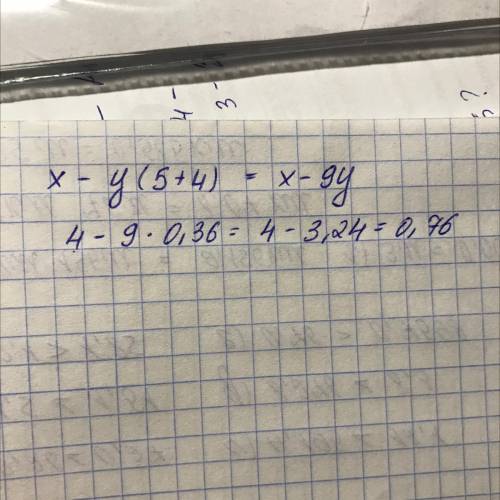 x - y (5+4) = x - 9y
4 - 9 · 0,36 = 4 - 3,24 = 0,76